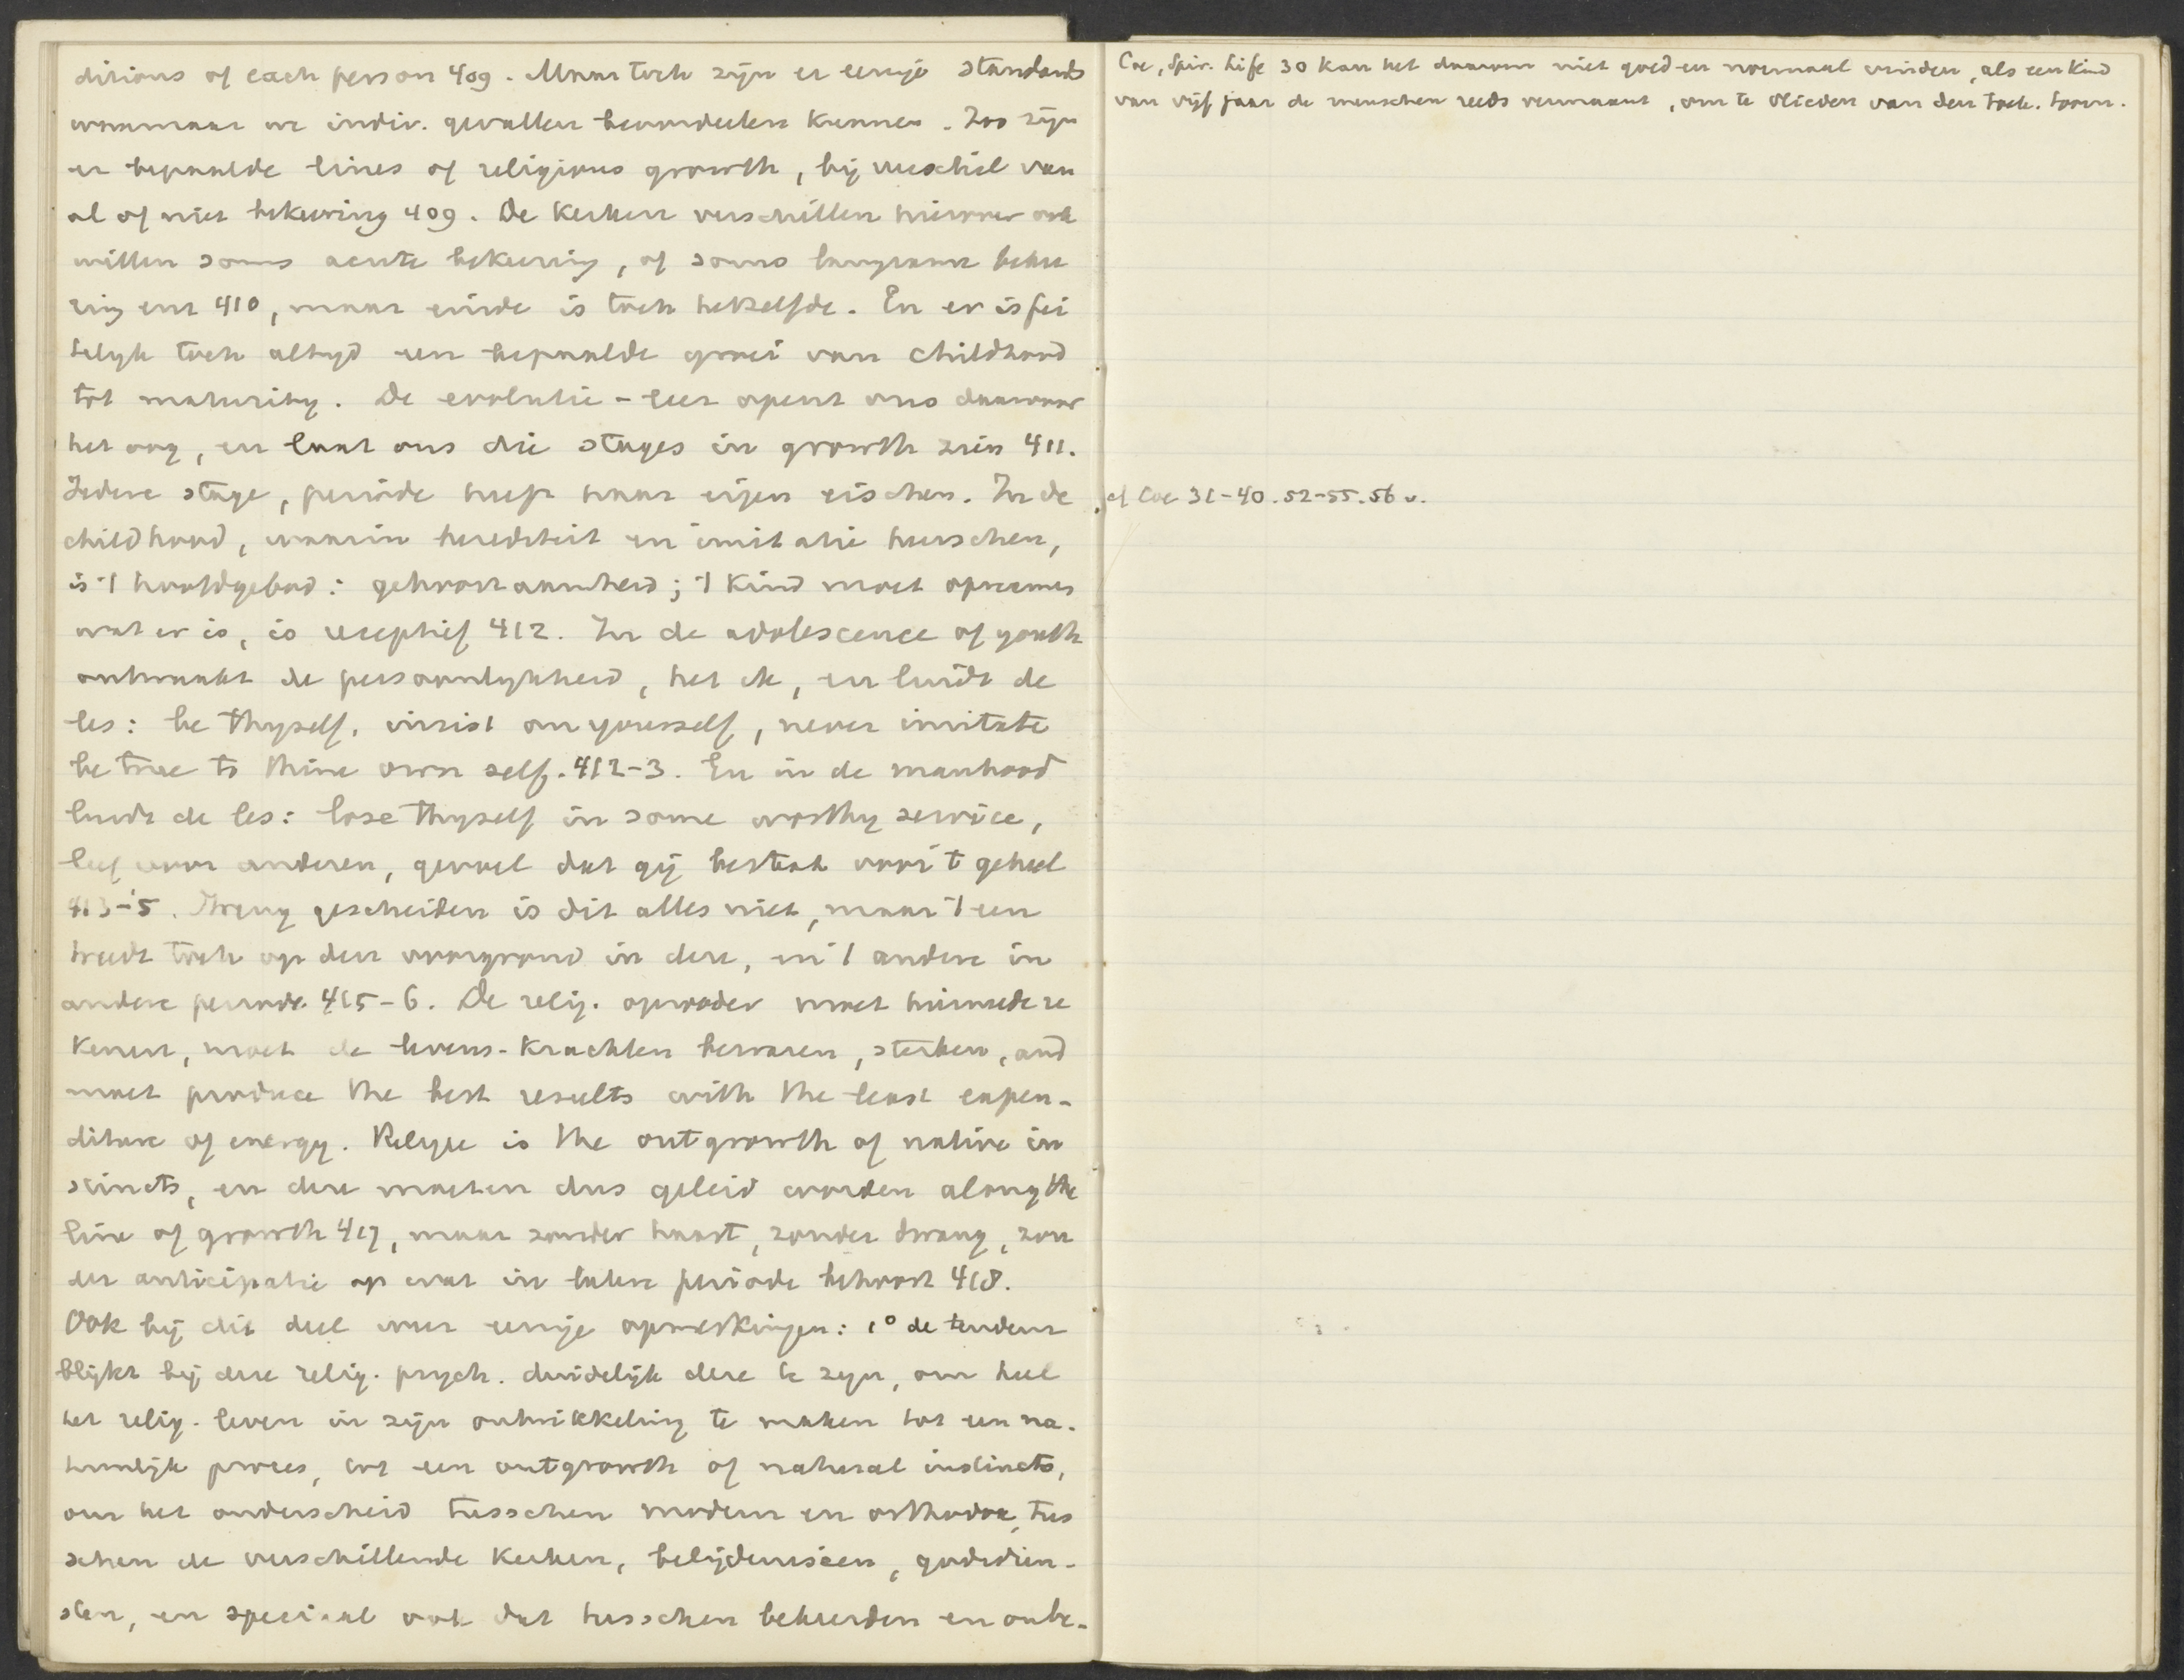 ditions of each person 409. Maar toch zijn er eenige standards
waarnaar we indiv. gevallen beoordeelen kunnen. Zoo zijn
er bepaalde lines of religious growth, bij verschil van
al of niet bekeering 409. De kerken verschillen hierover ook
willen soms acute bekeering, of soms langzame bekee
ring enz 410, maar einde is toch hetzelfde. En er is fei
telijk toch altijd een bepaalde groei van childhood
tot maturity. De evolutie-leer opent ons daarvoor
het oog, en laat ons die stages in growth zien 411.
Iedere stage, periode heeft haar eigen eischen. In de
childhood, waarin herediteit en imitatie heerschen,
is 't hoofdgebod: gehoorzaamheid; 't kind moet opnemen
wat er is, is receptief 412. In de adolescence of youth
ontwaakt de persoonlijkheid, het ik, en luidt de
les: be thyself, insist on yourself, never imitate
be true to thine own self. 412-3. En in de manhood
luidt de les: lose thyself in some worthy service,
leef voor anderen, gevoel dat gij bestaat voor 't geheel
413-5. Streng gescheiden is dit alles niet, maar 't een
treedt toch op den voorgrond in deze, en 't andere in
andere periode 415-6. De relig. opvoeder moet hiermede re
kenen, moet de levens-krachten bewaren, sterken, and
moet produce the best results with the least expen-
diture of energy. Religie is the outgrowth of native in
stincts, en deze moeten dus geleid worden along the
line of growth 417, maar zonder haast, zonder dwang, zon
der anticipatie op wat in latere periode behoort 418.
Ook bij dit deel weer eenige opmerkingen: 1° de tendenz
blijkt bij deze relig. psych. duidelijk deze te zijn, om heel
het relig. leven in zijn ontwikkeling te maken tot een na-
tuurlijk proces, tot een outgrowth of natural instincts,
om het onderscheid tusschen modern en orthodox, tus
schen de verschillende kerken, belijdenissen, godsdien-
sten, en speciaal ook dat tusschen bekeerden en onbe-
Coe, Spir. Life 30 kan het daarom niet goed en normaal vinden, als een kind
van vijf jaar de menschen reeds vermaant, om te vlieden van den toek. toorn.
cf Coe 31-40. 52-55. 56 v.